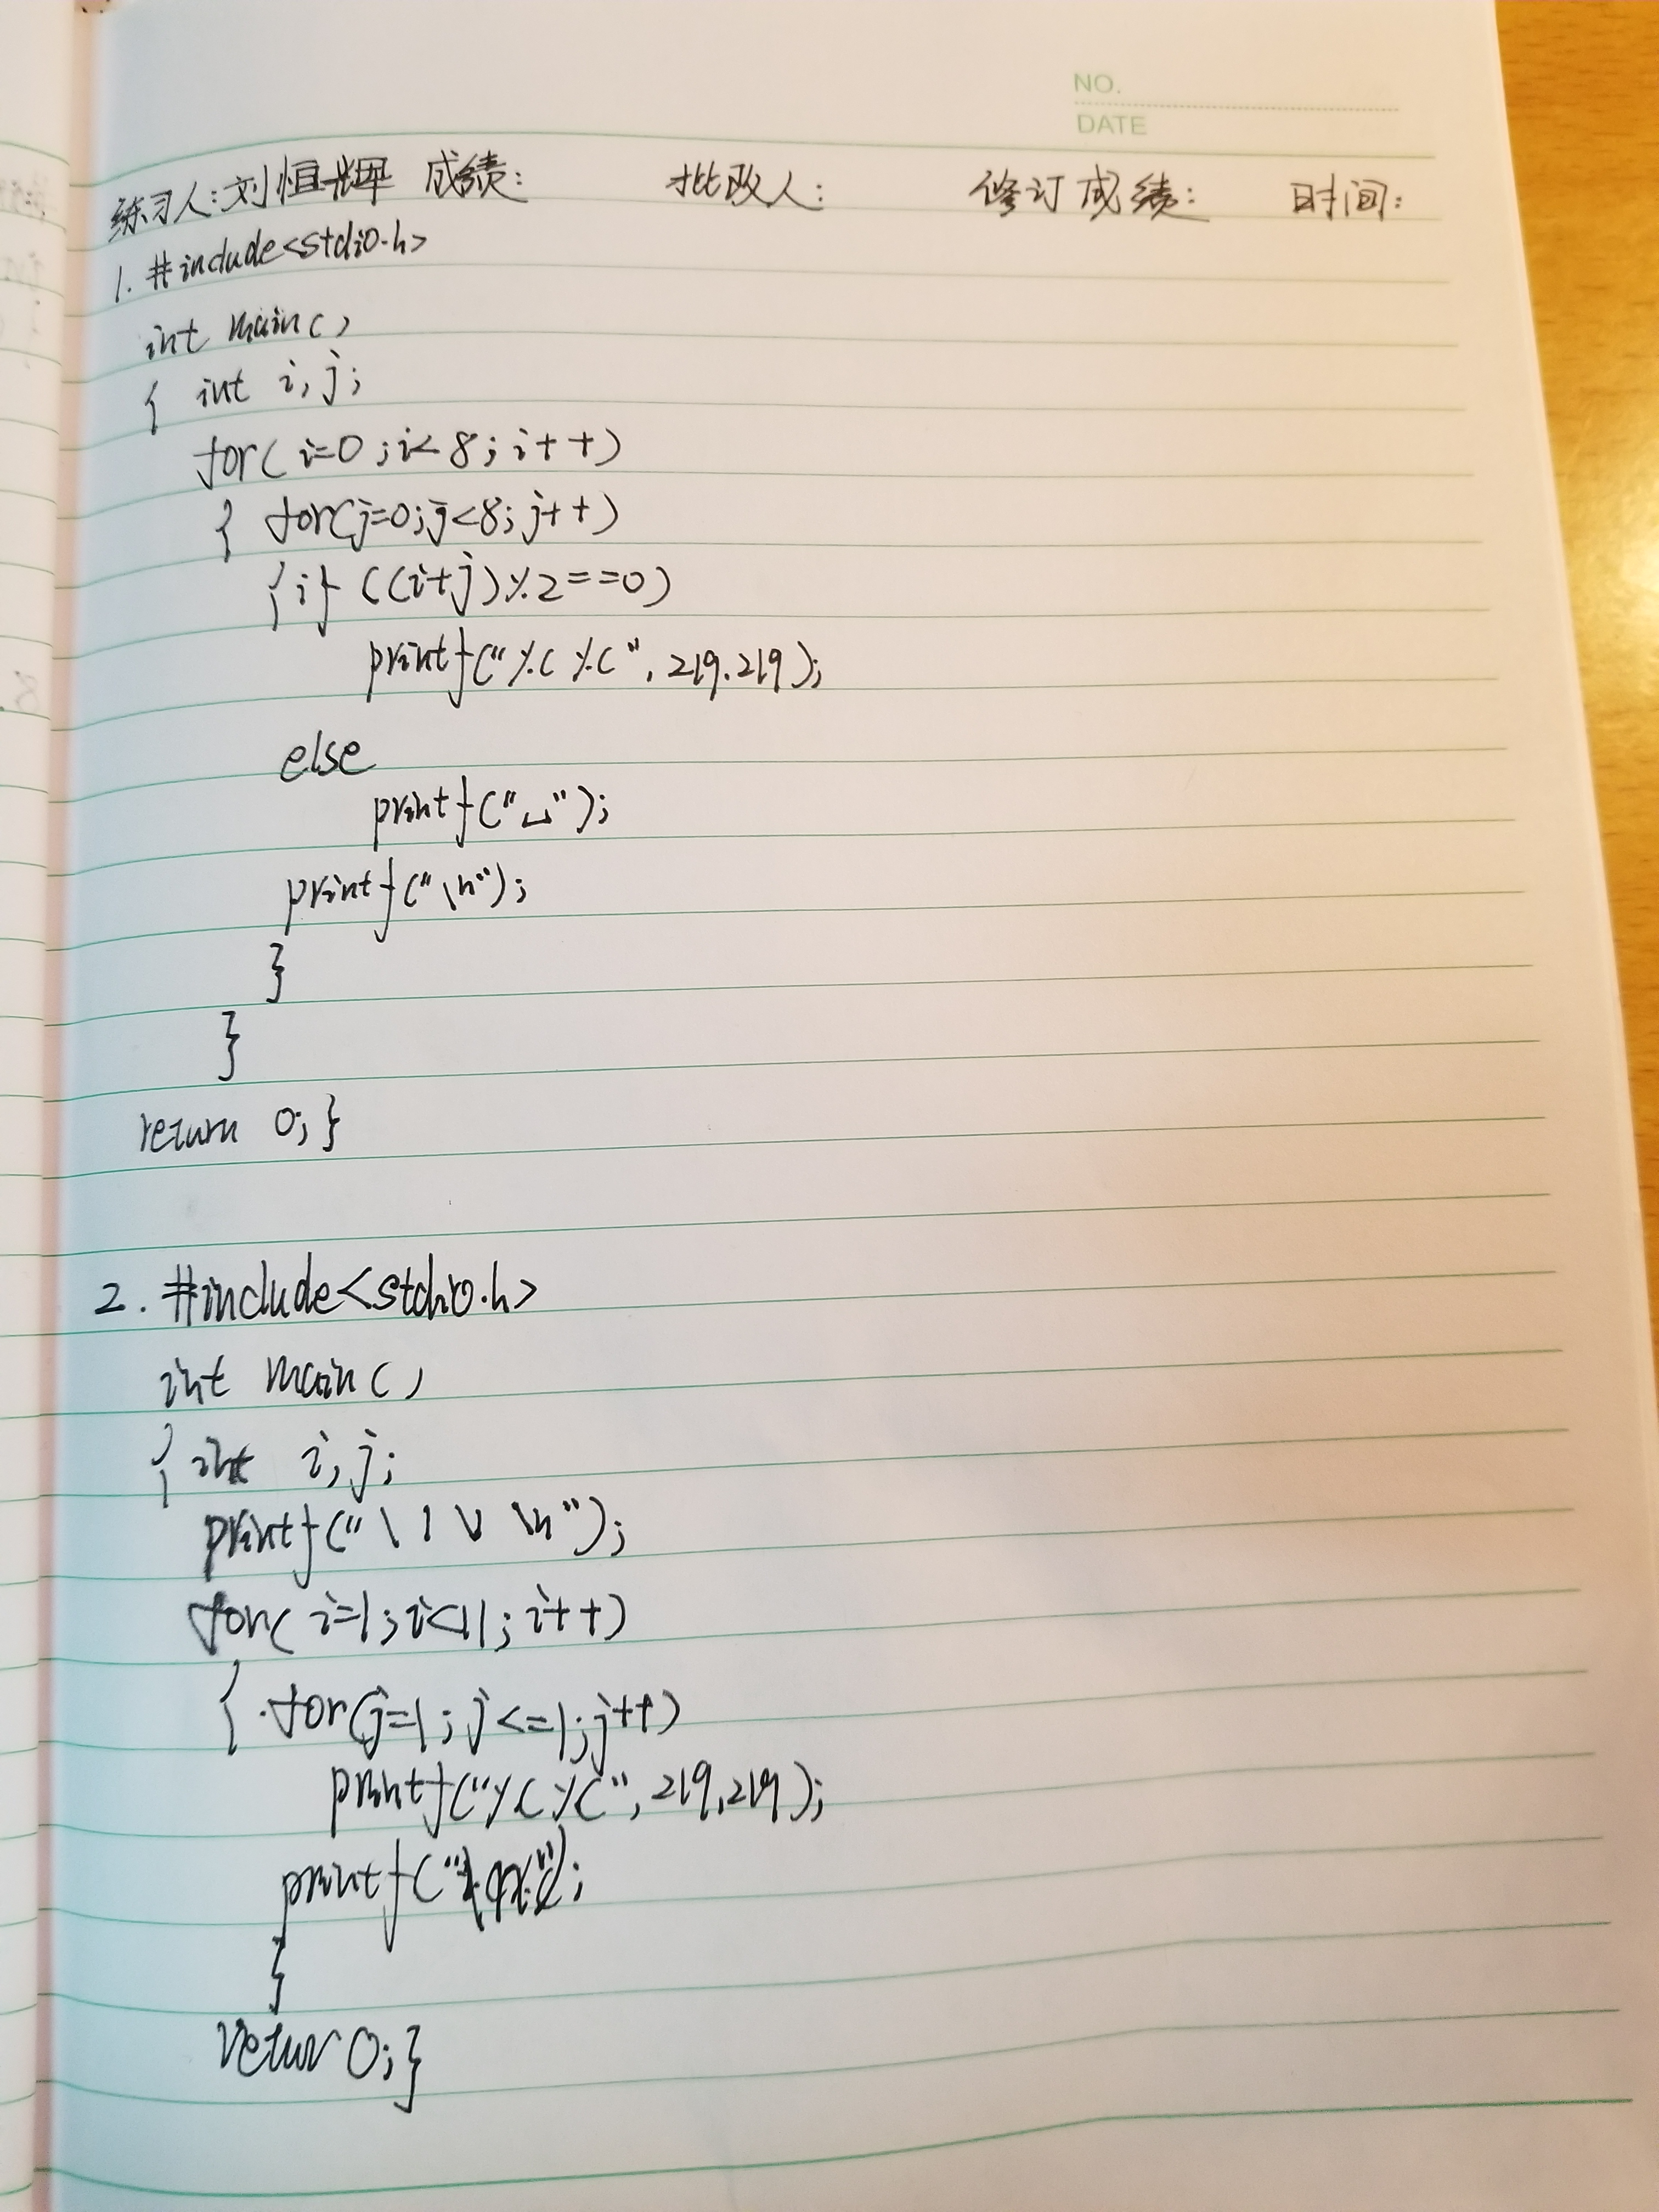 NO.
DATE
练习人:刘恒辉 成绩: 批改人: 修订成绩: 时间:
1. #include<stdio.h>
int main()
{ int i,j;
for(i=0;i<8;i++)
{ for(j=0;j<8;j++)
{if ((i+j)%2==0)
printf("%c%c",219.219);
else
printf("␣");
printf("\n");
}
}
return 0;}
2. #include<stdio.h>
int main()
{ int i,j;
printf("\1\1\n");
for(i=1;i<11;i++)
{ for(j=1;j<=1;j++)
printf("%c%c",219,219);
printf(
}
retur 0;}